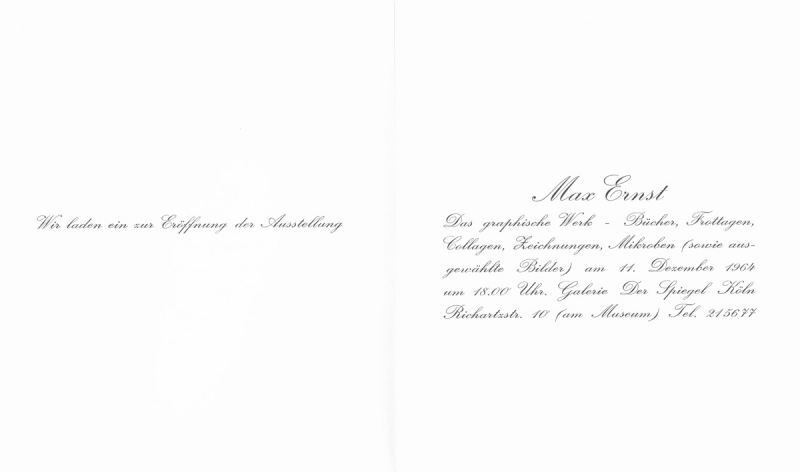 Wir laden ein zur Eröffnung der Ausstellung
Max Ernst
Das graphische Werk - Bücher, Frottagen,
Collagen, Zeichnungen, Mikroben (sowie aus-
gewählte Bilder) am 11. Dezember 1964
um 18.00 Uhr. Galerie Der Spiegel Köln
Richartzstr. 10 (am Museum) Tel. 215677